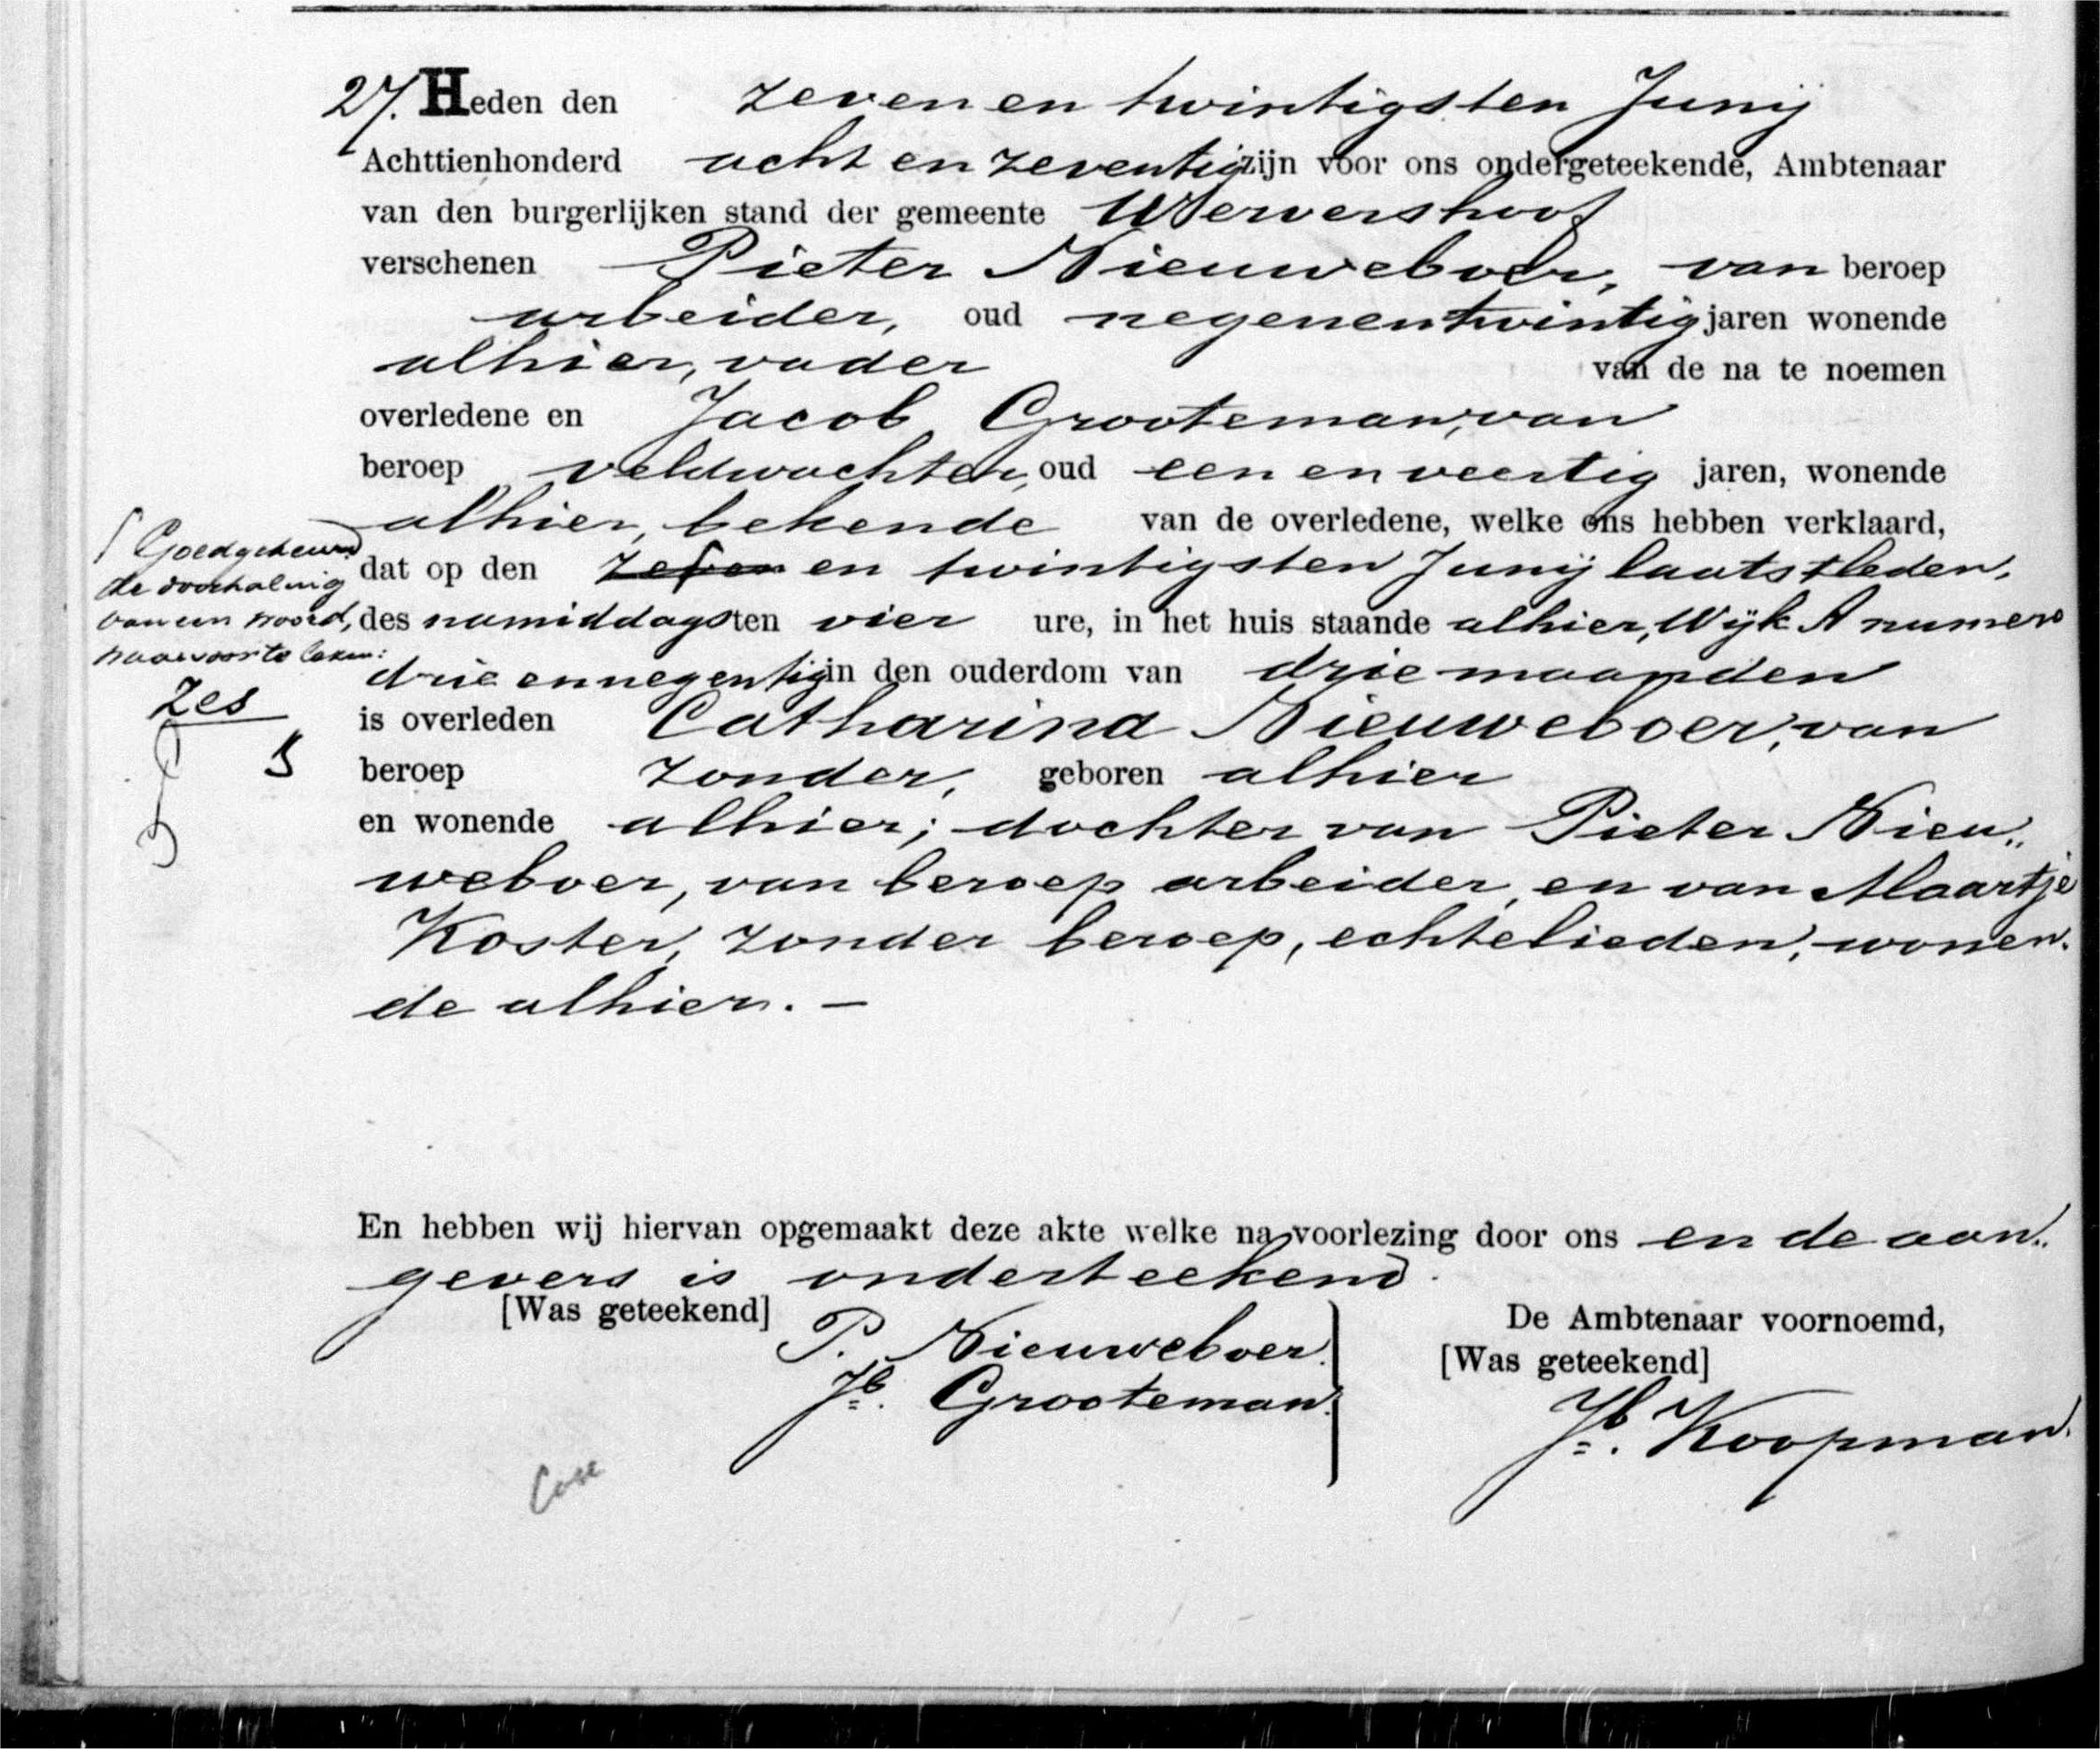 27. Heden den zeven en twintigsten Junij
Achttienhonderd acht en zeventig zijn voor ons ondergeteekende, Ambtenaar
van den burgerlijken stand der gemeente Wervershoof
verschenen Pieter Nieuweboer, van beroep
arbeider, oud negenentwintig jaren wonende
alhier, vader van de na te noemen
overledene en Jacob Grooteman, van
beroep veldwachter, oud een en veertig jaren, wonende
alhier, bekende van de overledene, welke ons hebben verklaard,
dat op den zeven en twintigsten Junij laatstleden,
des namiddags ten vier ure, in het huis staande alhier, Wijk A numero
drie en negentig in den ouderdom van drie maanden
is overleden Catharina Nieuweboer, van
beroep zonder, geboren alhier
en wonende alhier; dochter van Pieter Nieu„
weboer, van beroep arbeider, en van Maartje
Koster, zonder beroep, echtelieden, wonen„
de alhier. —
Goedgekeurd
de doorhaling
van een woord,
waarvoor te lezen:
zes
En hebben wij hiervan opgemaakt deze akte welke na voorlezing door ons en de aan„
gevers is onderteekend.
[Was geteekend] P. Nieuweboer.
Jb. Grooteman.
De Ambtenaar voornoemd,
[Was geteekend]
Jb. Koopman.